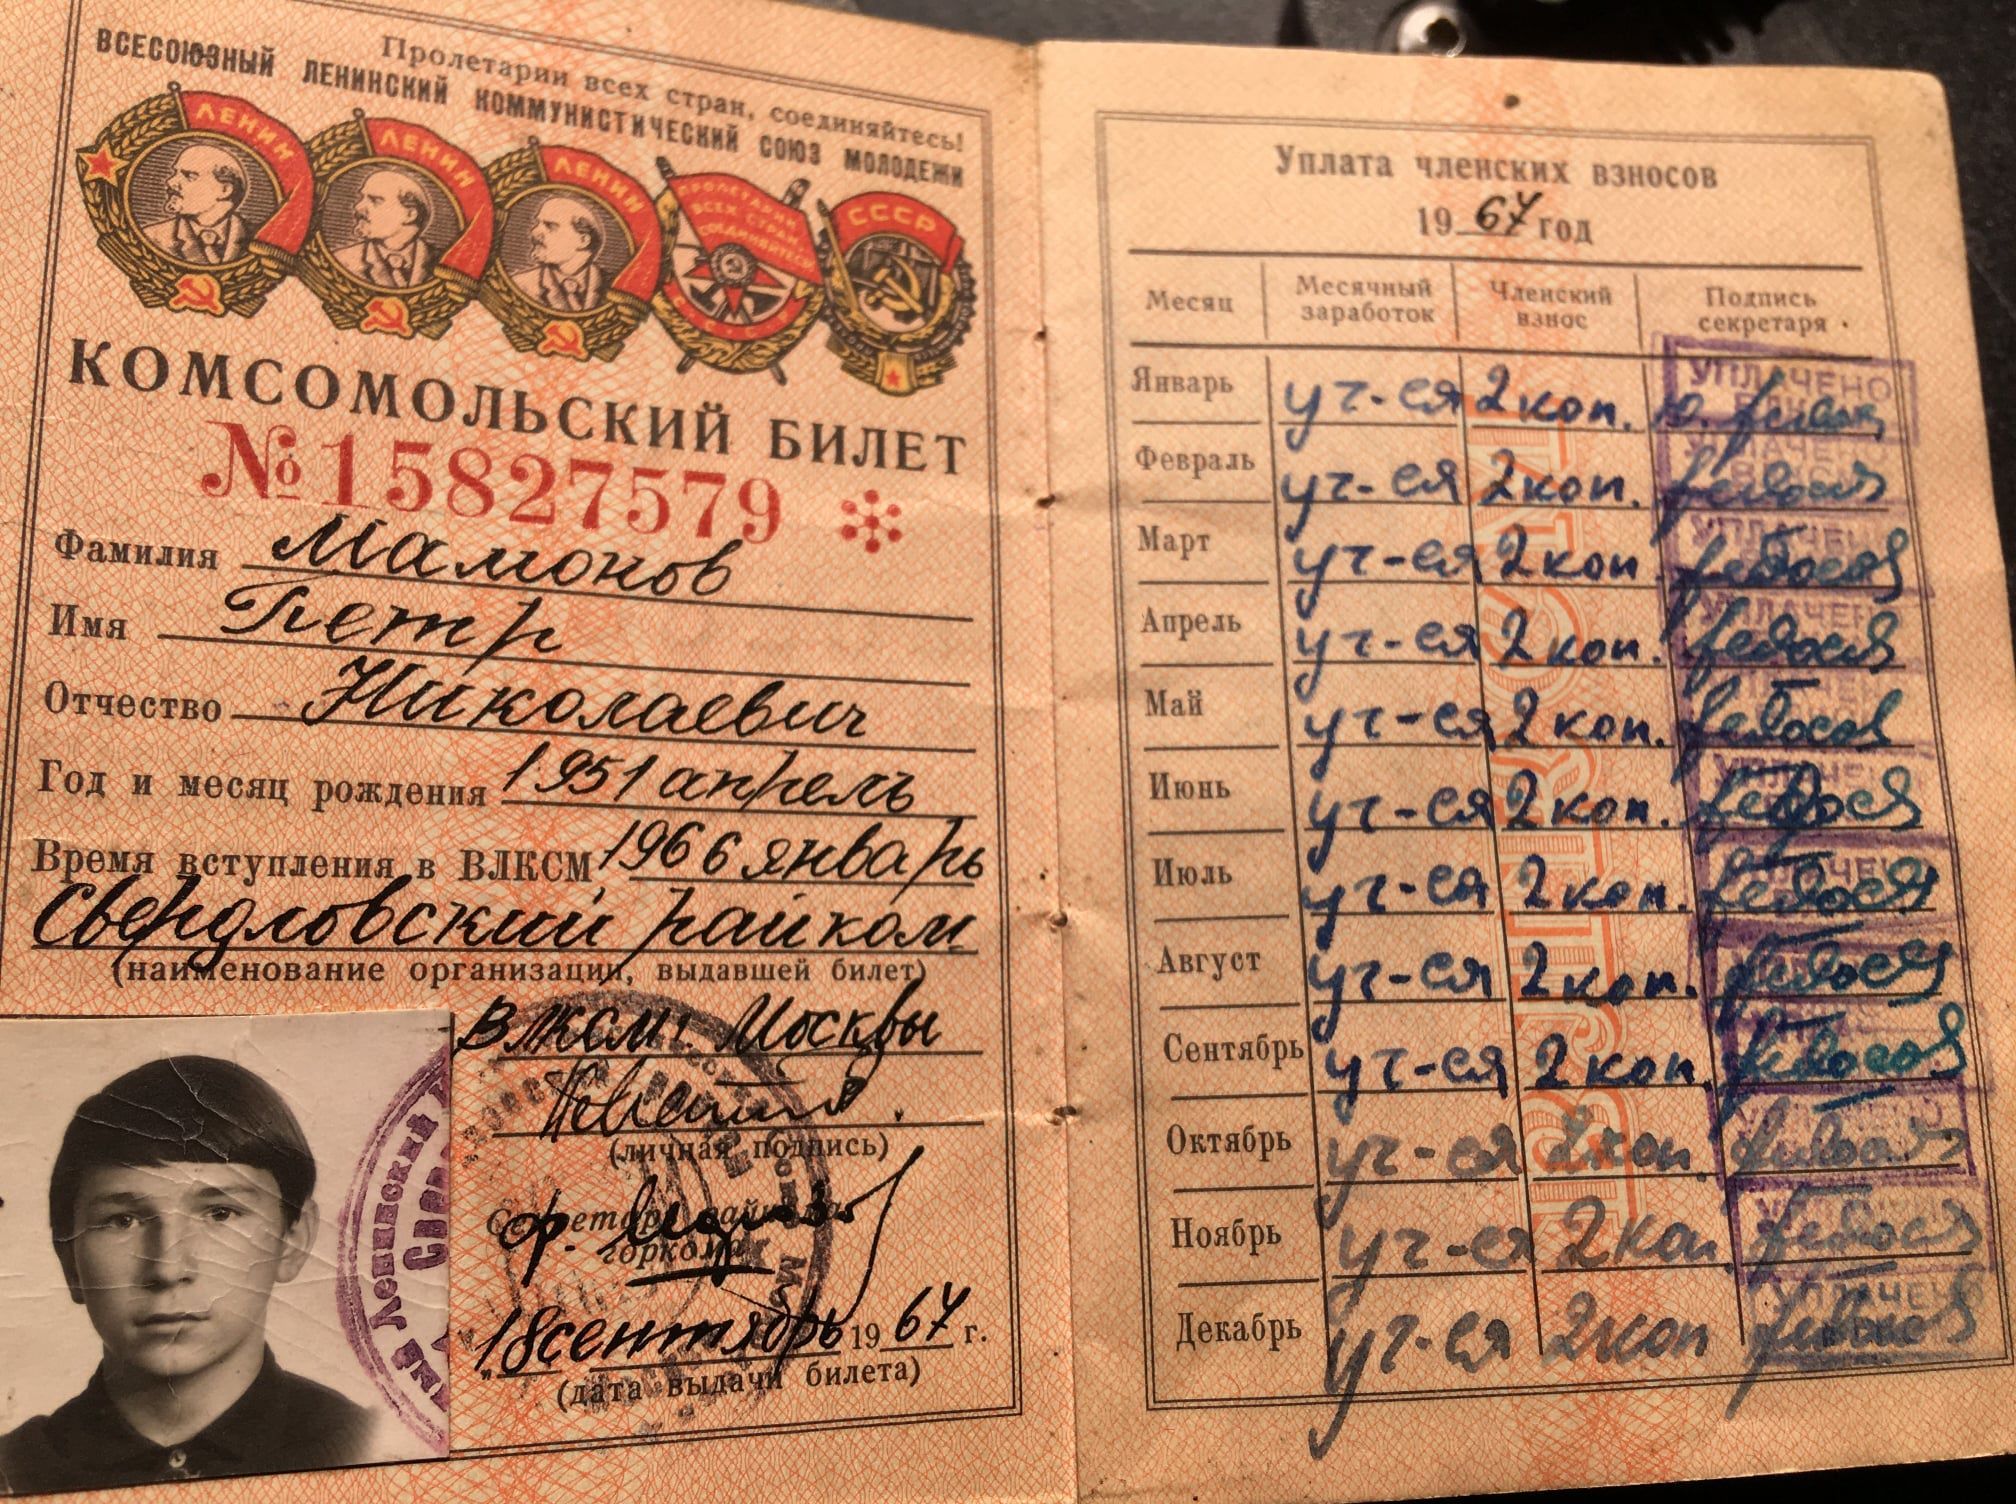 Пролетарии всех стран, соединяйтесь!
ВСЕСОЮЗНЫЙ ЛЕНИНСКИЙ КОММУНИСТИЧЕСКИЙ СОЮЗ МОЛОДЕЖИ
ЛЕНИН ЛЕНИН ЛЕНИН ПРОЛЕТАРИИ ВСЕХ СТРАН, СОЕДИНЯЙТЕСЬ СССР
КОМСОМОЛЬСКИЙ БИЛЕТ
№15827579
Фамилия Мамонов
Имя Петр
Отчество Николаевич
Год и месяц рождения 1951 апрель
Время вступления в ВЛКСМ 1966 январь
Свердловский райком
(наименование организации, выдавшей билет)
ВЛКСМ г. Москвы
(личная подпись)
Секретарь райкома
горкома
"18 сентябрь 1967 г.
(дата выдачи билета)
Уплата членских взносов
1967 год
Месяц Месячный заработок Членский взнос Подпись секретаря
Январь уч-ся 2 коп. УПЛАЧЕНО
Февраль уч-ся 2 коп. УПЛАЧЕНО
Март уч-ся 2 коп. УПЛАЧЕНО
Апрель уч-ся 2 коп. УПЛАЧЕНО
Май уч-ся 2 коп.
Июнь уч-ся 2 коп. УПЛАЧЕНО
Июль уч-ся 2 коп. УПЛАЧЕНО
Август уч-ся 2 коп.
Сентябрь уч-ся 2 коп.
Октябрь уч-ся 2 коп.
Ноябрь уч-ся 2 коп.
Декабрь уч-ся 2 коп УПЛАЧЕНО